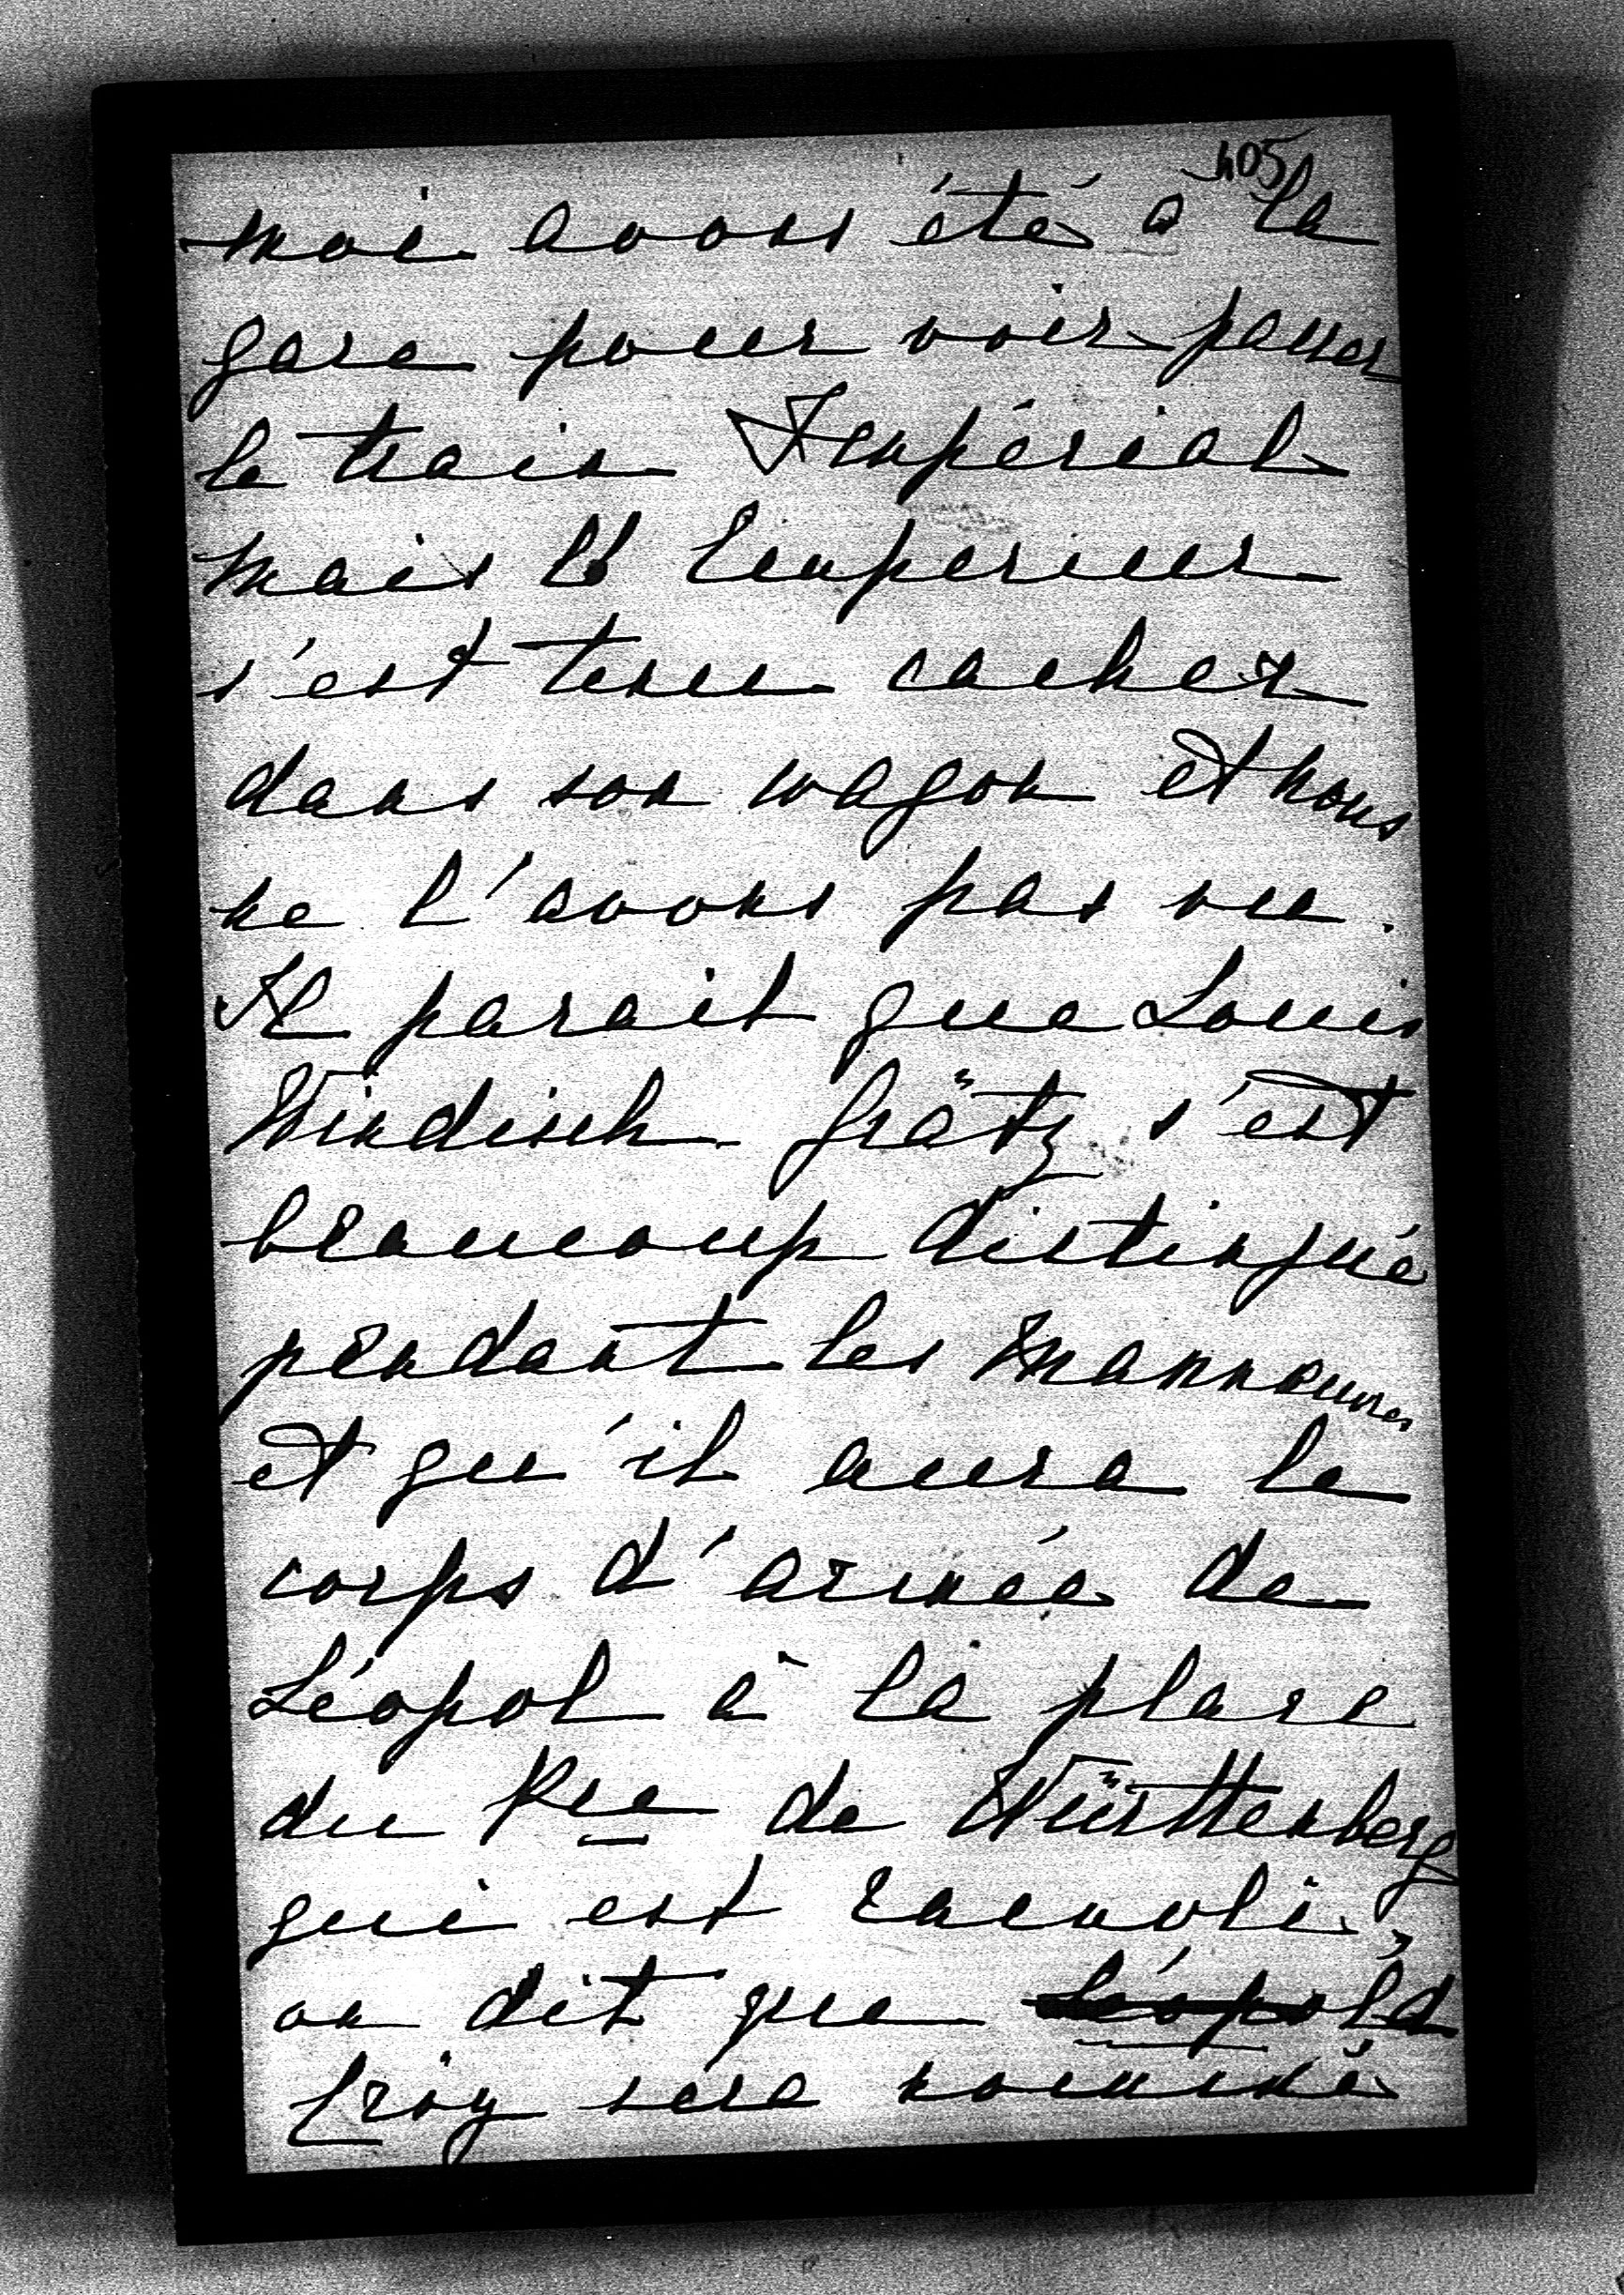 405
moi avons été à la
gare pour voir passer
le train Impérial
mais l'Empereur
s'est tenu cacher
dans son wagon et nous
ne l'avons pas vu.
Il parait que Louis
Windisch Grätz s'est
beaucoup distingué
pendant les mannœuvres
et qu'il aura le
corps d'armée de
Léopol à la place
du Pce de Württenberg
qui est ramoli,
on dit que Léopold
Croy sera nommé